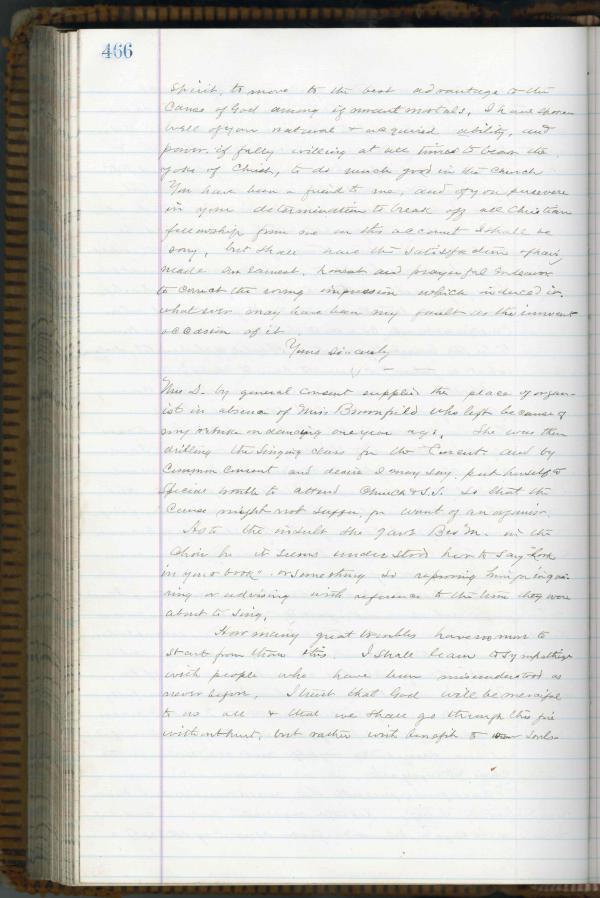 466
Spirit, to move to the best advantage to the
cause of God among ignorant mortals. I have spoken
well of your natural & acquired ability, and
power, if fully willing at all times to bear the
yoke of Christ, to do much good in the church
You have been a friend to me, and if you persevere
in your determination to break off all Christian
fellowship from me on this account I shall be
sorry, but shall have the satisfaction of having
made an earnest, honest and prayerful endeavor
to correct the wrong impression which induced it,
whatever may have been my fault as the innocent
occasion of it
Yours sincerely
Miss D. by general consent supplied the place of organ-
ist in absence of Miss Broomfield who left because of
my on dancing one year ago. She was then
drilling the singing class for the Concert and by
common consent and desire I may say put herself to
special trouble to attend Church & S.S. so that the
cause might not suffer for want of an organist.
As to the insult she gave Bro M. in the
choir he it seems understood her to say "look
in your book" or something so reproving him for inqui-
ring or advising with reference to the time they were
about to sing.
How many great troubles have no more to
start from than this. I shall learn to sympathize
with people who have been misunderstood as
never before. I trust that God will be merciful
to us all & that we shall go through this fire
without hurt, but rather with benefit to our souls.